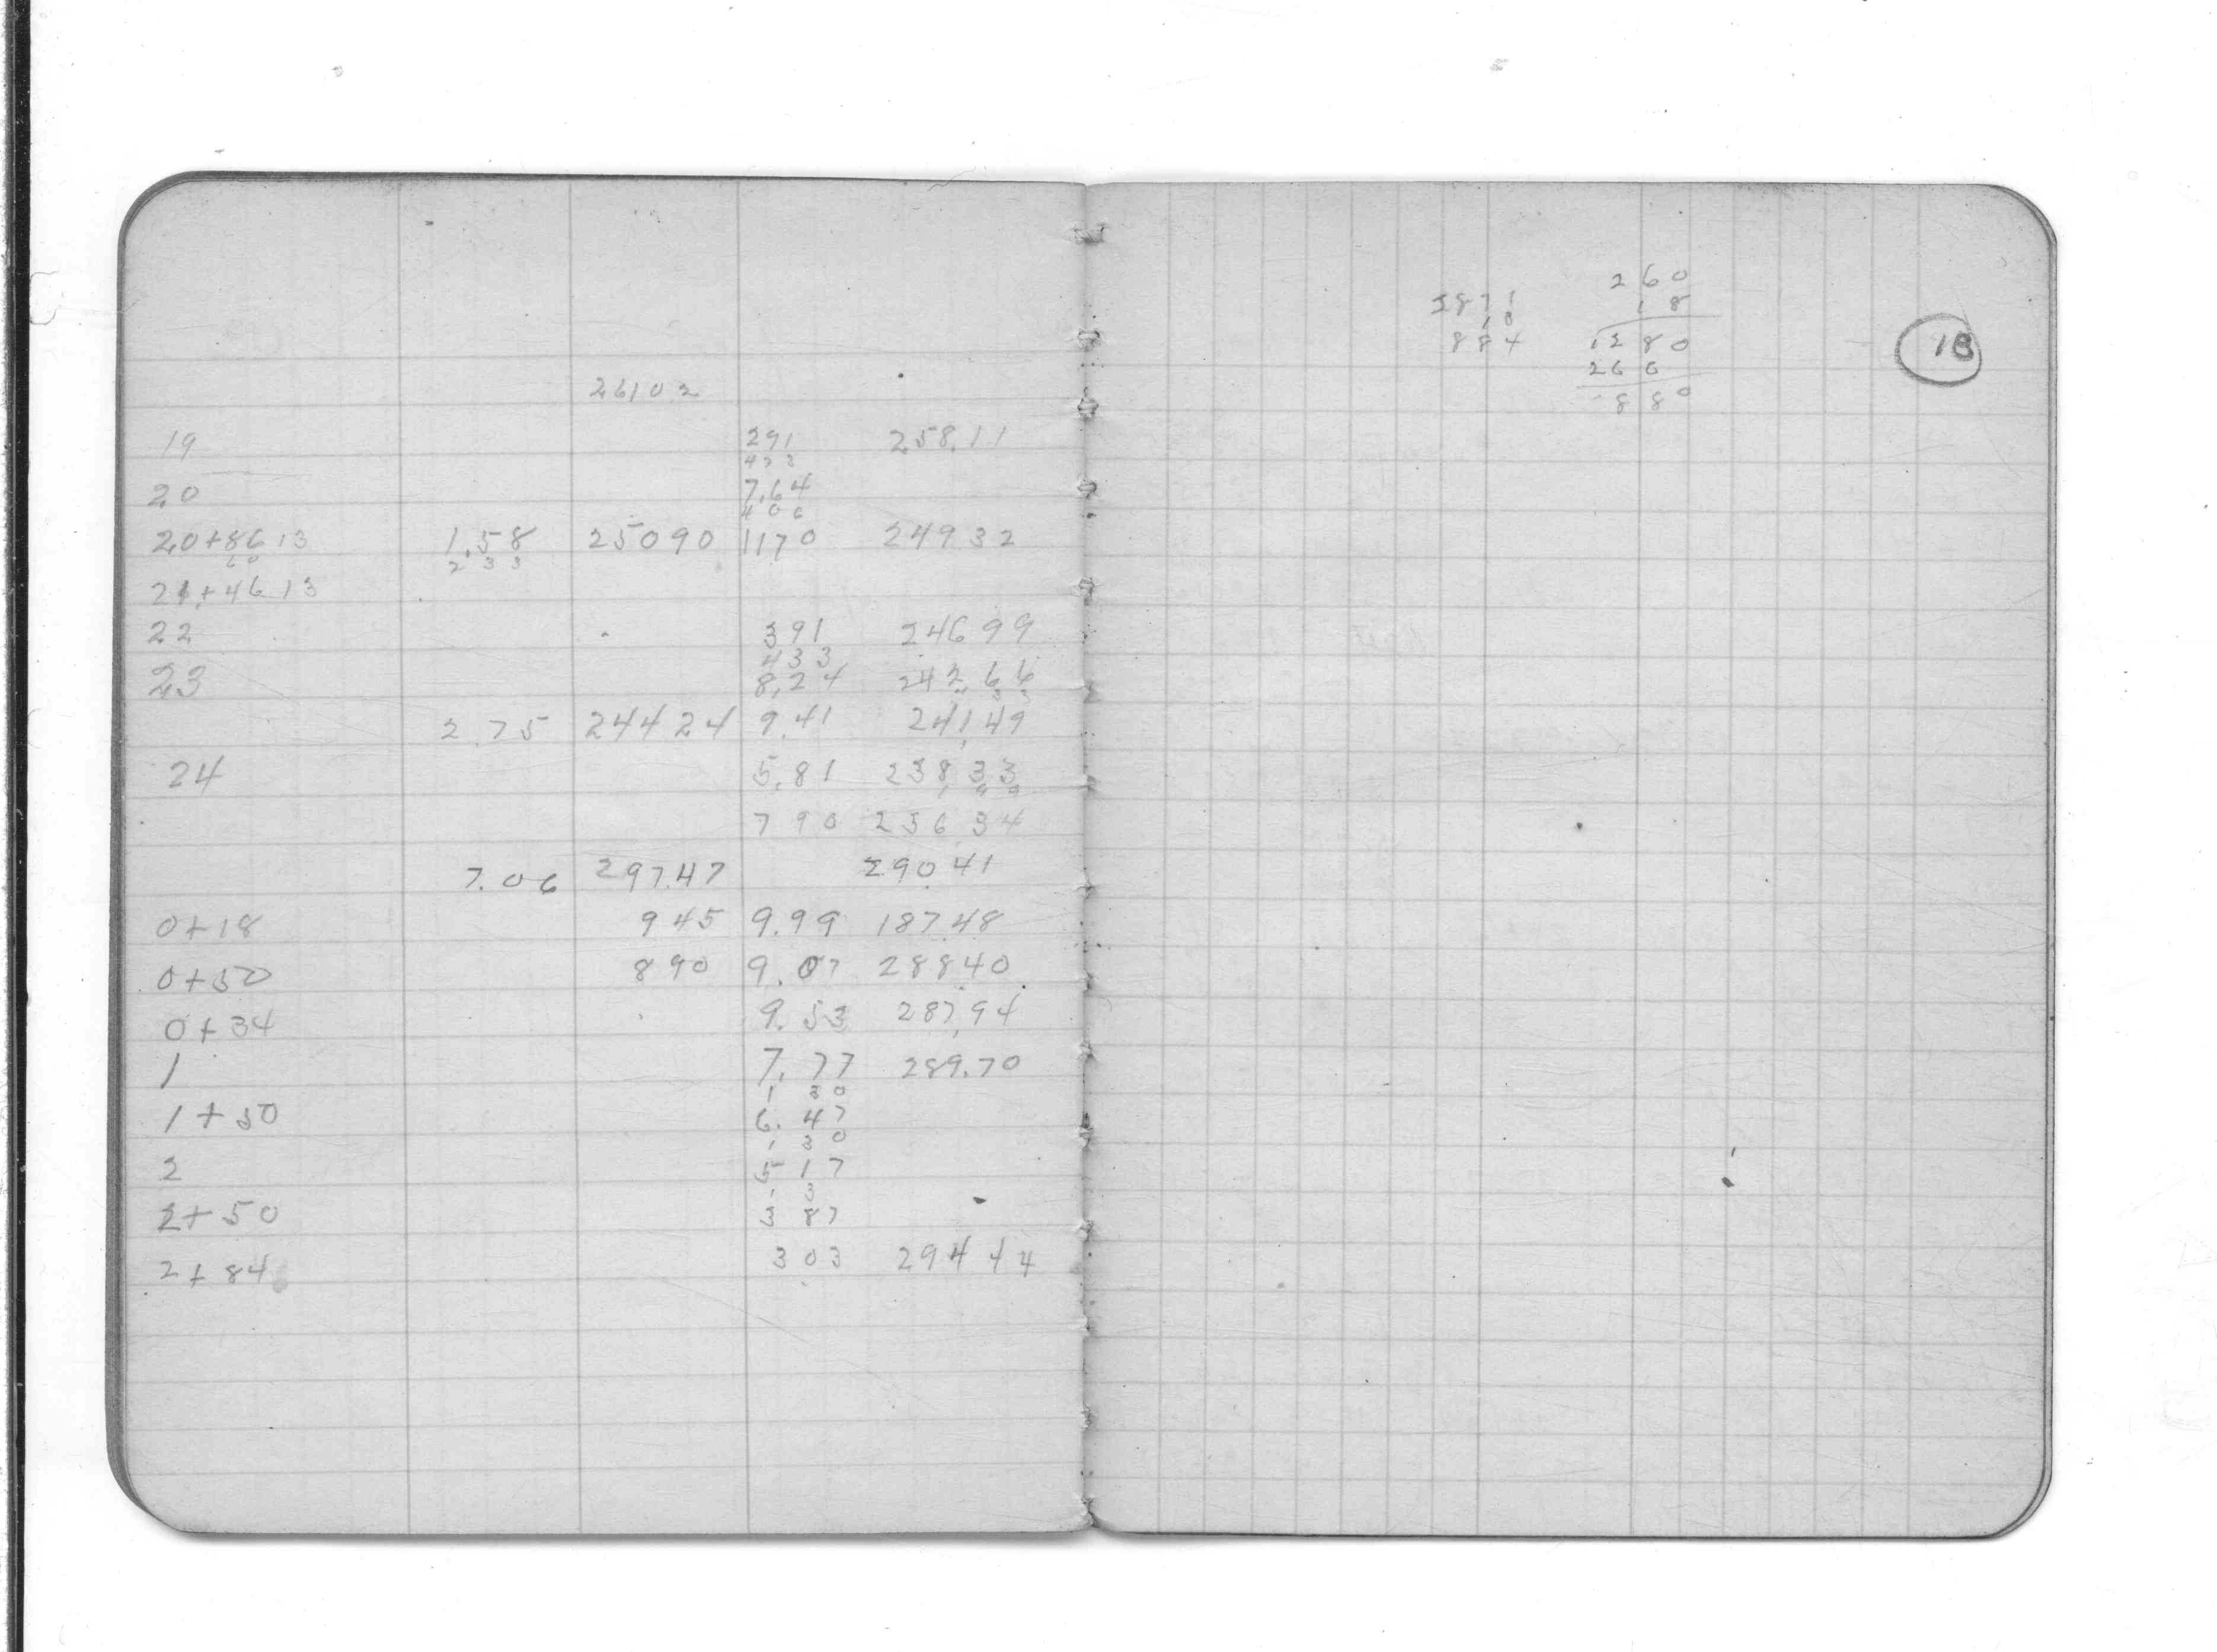 26102
19 291 258.11
433
20 7.64
406
20+86 13 1.58 25090 1170 24932
60 233
21+46 13
22 391 24699
433
23 8.24 242.66
2.75 24424 9.41 241.49
24 5.81 23833
790 23634
7.06 297.47 290.41
0+18 945 9.99 187.48
0+50 890 9.07 28840
0+34 9.53 287.94
1 7.77 289.70
1 30
1+50 6.47
1 30
2 5 17
1 3
2+50 3 87
2+84 303 29444
260
2871 18
10
884 1280
260
880
18